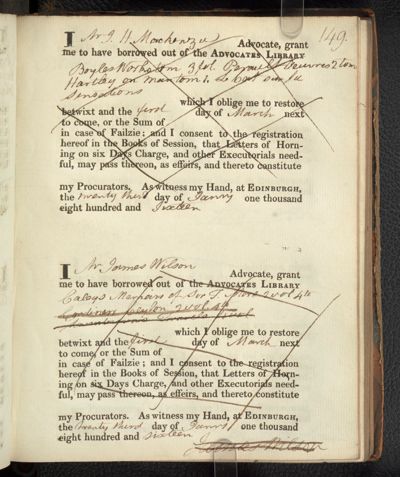 149.
I Mr J H Mackenzie Advocate, grant
me to have borrowed out of the ADVOCATES LIBRARY
Boyles Works 3 fol. Oeuvres 2 tom
Hartley on man tom 1. Le Cat sur les
Sensations
which I oblige me to restore
betwixt and the first day of March next
to come, or the Sum of
in case of Failzie; and I consent to the registration
hereof in the Books of Session, that Letters of Horn-
ing on six Days Charge, and other Executorials need-
ful, may pass thereon, as effeirs, and thereto constitute
my Procurators. As witness my Hand, at EDINBURGH,
the twenty third day of Janry one thousand
eight hundred and Sixteen
I Mr James Wilson
Advocate, grant
me to have borrowed out of the ADVOCATES LIBRARY
Cayleys Memoirs of Sir T. More 2 vol 4to
Ceylon 2 vol 4to
which I oblige me to restore
betwixt and the first day of March next
to come, or the Sum of
in case of Failzie; and I consent to the registration
hereof in the Books of Session, that Letters of Horn-
ing on six Days Charge, and other Executorials need-
ful, may pass thereon, as effeirs, and thereto constitute
my Procurators. As witness my Hand, at EDINBURGH,
the twenty third day of Janry one thousand
eight hundred and sixteen
James Wilson